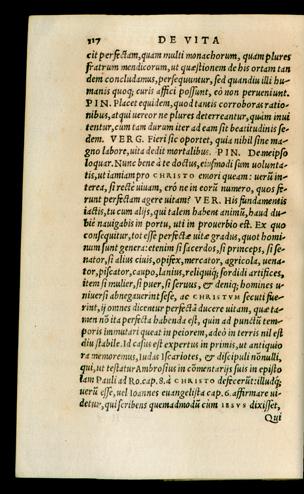 317 DE VITA
cit perfectam, quam multi monachorum, quam plures
fratrum mendicorum, ut quæstionem de his ortam tan
dem concludamus, persequuntur, sed quandiu illi hu-
manis quoq; curis affici possunt, eò non perueniunt.
PIN. Placet equidem, quod tantis corroboras ratio-
nibus, at qui uereor ne plures deterreantur, quàm inui
tentur, cum tam durum iter ad eam sit beatitudinis se-
dem. VERG. Fieri sic oportet, quia nihil sine ma-
gno labore, uita dedit mortalibus. PIN. De meipso
loquar. Nunc bene à te doctus, eiusmodi sum volunta-
tis, ut iam iam pro CHRISTO emori queam: uerũ in-
terea, si rectè uiuam, erò ne in eorũ numero, quos fe-
runt perfectam agere uitam? VER. His fundamentis
iactis, tu cum alijs, qui talem habent animũ, haud du-
biè nauigabis in portu, uti in prouerbio est. Ex quo
consequitur, tot esse perfectæ uitæ gradus, quot homi-
num sunt genera: etenim si sacerdos, si princeps, si se-
nator, si alius ciuis, opifex, mercator, agricola, uena-
tor, piscator, caupo, lanius, reliquiq; sordidi artifices,
item si mulier, si puer, si seruus, & deniq; homines u-
niuersi abnegauerint sese, ac CHRISTVM secuti fue-
rint, ij omnes dicentur perfectã ducere uitam, quæ ta-
men nõ ita perfecta habenda est, quin ad punctũ tem-
poris immutari queat in peiorem, adeò in terris nil est
diu stabile. Id casus est expertus in primis, ut antiquio
ra memoremus, Iudas Iscariotes, & discipuli nõnulli,
qui, ut testatur Ambrosius in cõmentarijs suis in episto
lam Pauli ad Ro. cap. 8. à CHRISTO defecerũt: illudq;
uerũ esse, uel Ioannes euangelista cap. 6. affirmare ui-
detur, qui scribens quemadmodũ cùm IESVS dixisset,
Qui